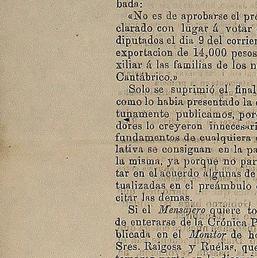 bada:
«No es de aprobarse el pre
clarado con lugar á votar
diputados el dia 9 del corrien
exportacion de 14,000 pesos
xiliar á las familias de los n
Cantábrico.»
Solo se suprimió el final
como lo habia presentado la c
tunamente publicamos, por
dores lo creyeron innecesari
fundamentos de cualquiera
lativa se consignan en la pa
la misma, ya porque no par
tar en el acuerdo algunas de
tualizadas en el preámbulo
citar las demas.
Si el Mensajero quiere to
de enterarse de la Crónica P
blicada en el Monitor de ho
Sres. Raigosa y Ruelas, que